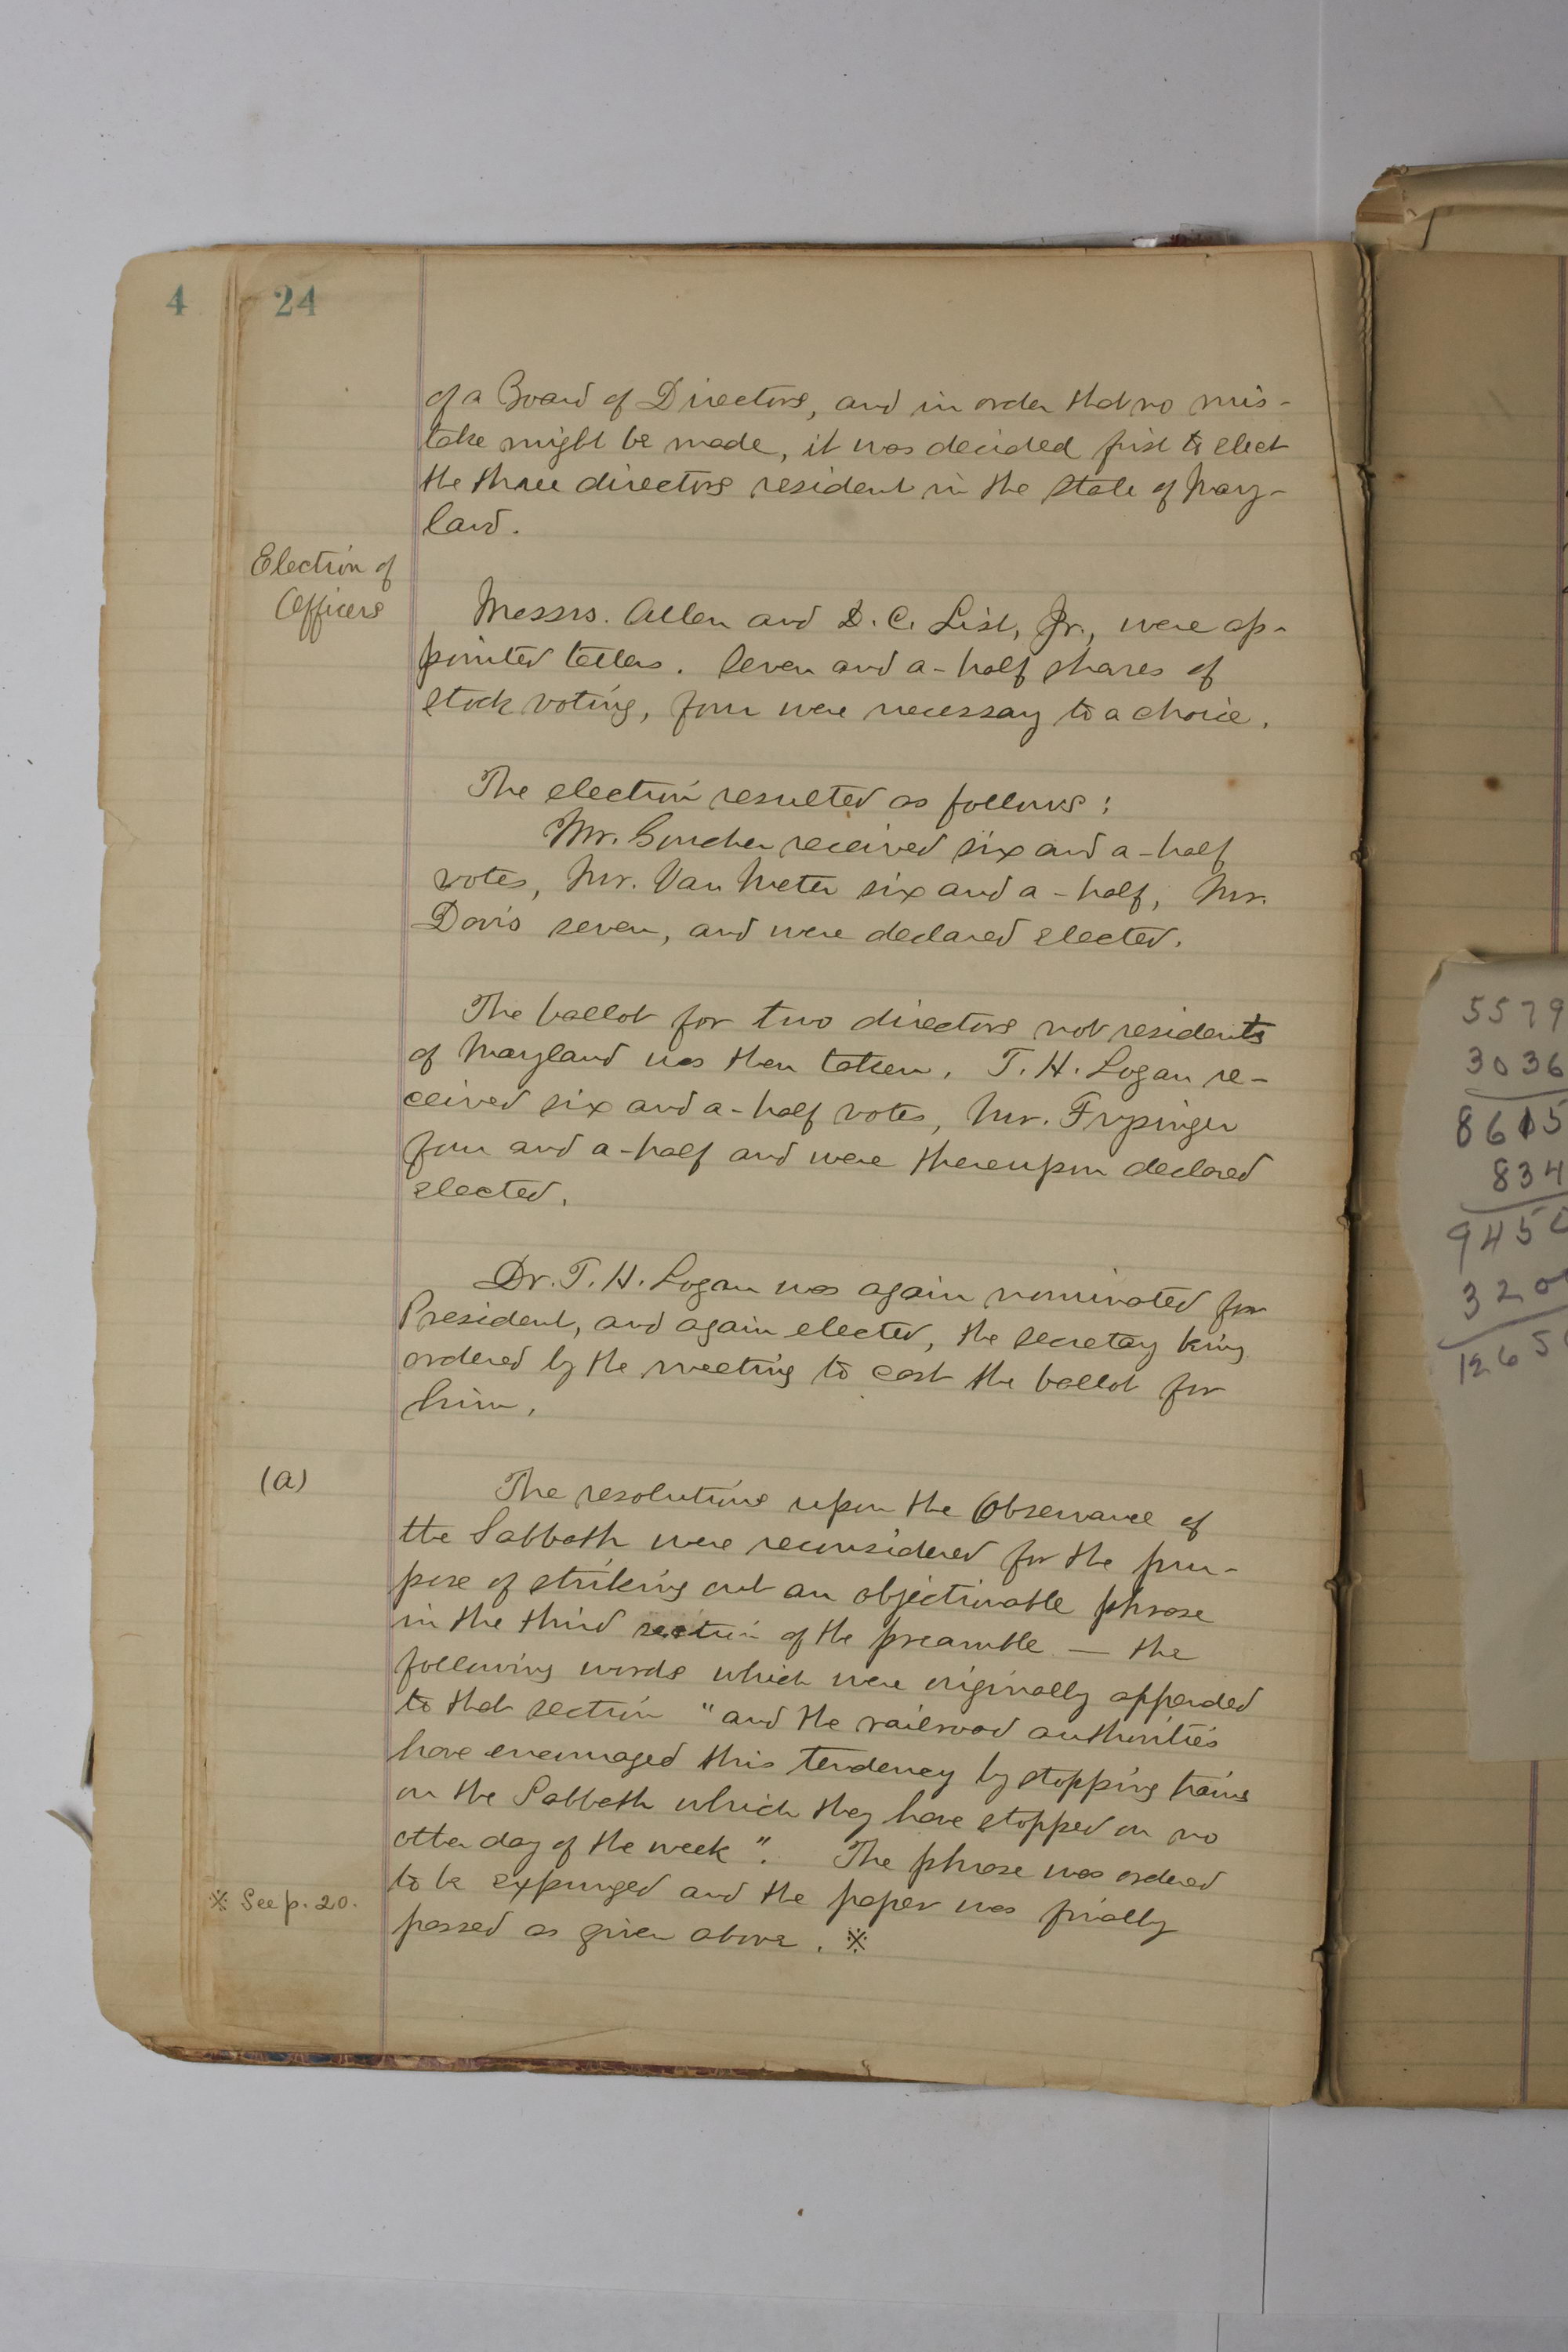 4
24
of a Board of Directors, and in order that no mis-
take might be made, it was decided first to elect
the three directors resident in the State of Mary-
land.
Election of
Officers
Messrs. Allen and D. C. List, Jr., were ap-
pointed tellers. Seven and a-half shares of
stock voting, four were necessary to a choice.
The election resulted as follows:
Mr. Goucher received six and a-half
votes, Mr. Van Meter six and a-half, Mr.
Davis seven, and were declared elected.
The ballot for two directors not residents
of Maryland was then taken. T. H. Logan re-
ceived six and a-half votes, Mr. Frysinger
four and a-half and were thereupon declared
elected.
Dr. T. H. Logan was again nominated for
President, and again elected, the secretary being
ordered by the meeting to cast the ballot for
him.
(a)
The resolutions upon the Observance of
the Sabbath were reconsidered for the pur-
pose of striking out an objectionable phrase
in the third section of the preamble — the
following words which were originally appended
to that section "and the railroad authorities
have encouraged this tendency by stopping trains
on the Sabbath which they have stopped on no
other day of the week". The phrase was ordered
to be expunged and the paper was finally
passed as given above. ※
※ See p. 20.
5579
3036
8615
834
945
320
1265